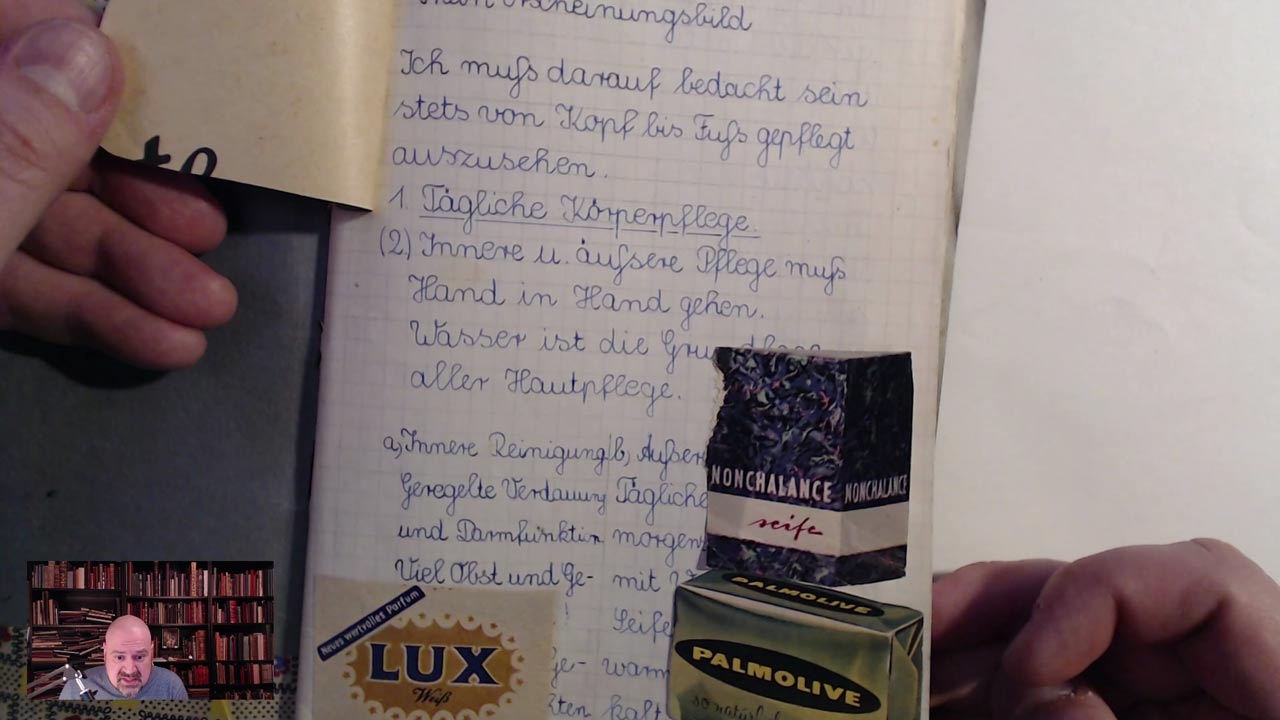 Mein Erscheinungsbild
Ich muſs darauf bedacht sein
stets von Kopf bis Fuſs gepflegt
auszusehen.
1. Tägliche Körperpflege.
(2) Innere u. äuſsere Pflege muſs
Hand in Hand gehen.
Wasser ist die
aller Hautpflege.
a, Innere Reinigung b, Äußer
Geregelte Verdauung Tägliche
und Darmfunktion morgens
Viel Obst und Ge- mit
! Seife
ge- warm
kalt
NONCHALANCE NONCHALANCE
seife
Neues wertvolles Parfum
LUX
Weiß
PALMOLIVE
PALMOLIVE
so natürlich